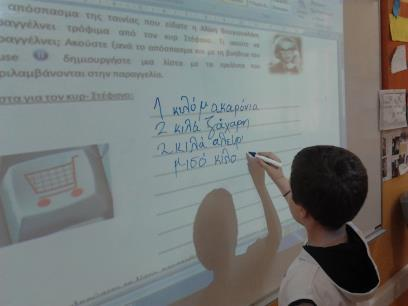 απόσπασμα της ταινίας που είδατε η Αλίκη Βουγιουκλάκη
αραγγέλνει τρόφιμα από τον κυρ Στέφανο. Τι ακούτε να
αραγγέλνει; Ακούστε ξανά το απόσπασμα και με τη βοήθεια του
use δημιουργήστε μια λίστα με τα προϊόντα που
ριλαμβάνονται στην παραγγελία.
στα για τον κυρ- Στέφανο:
1 κιλό μακαρόνια
2 κιλά ζάχαρη
2 κιλά αλεύρ
μισό κιλο